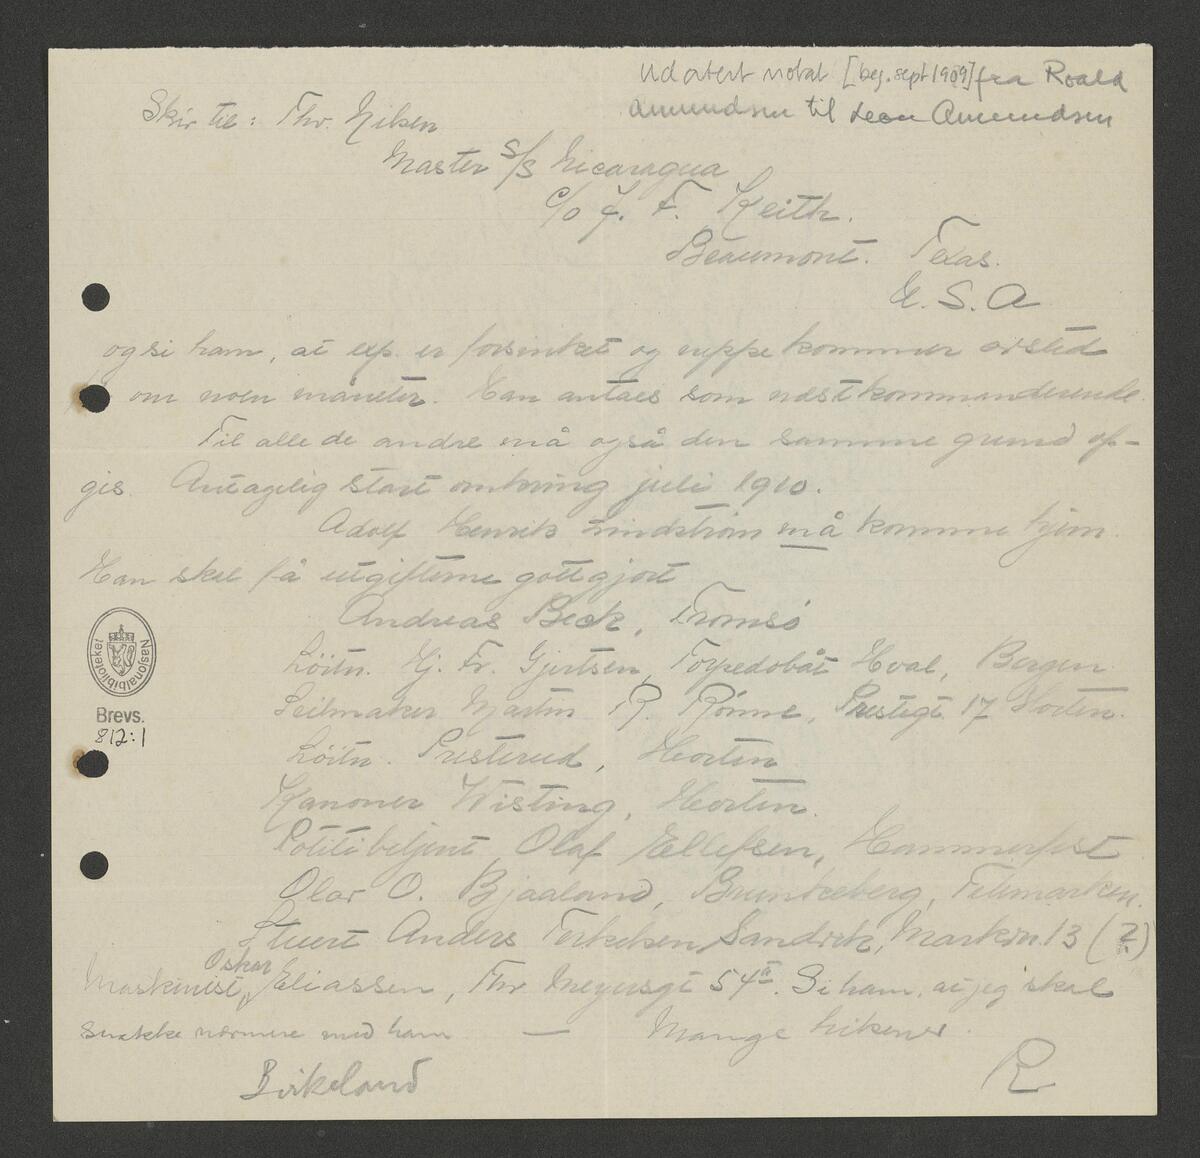 Udatert notat [beg. sept 1909] fra Roald
Amundsen til Leon Amundsen
Skriv til: Thv. Nilsen
Master S/S Nicaragua
c/o J. F. Keith.
Beaumont. Texas.
U. S. A
og si ham, at exp. er forsinket og neppe kommer avsted
om noen måneter. Han antaes som næstkommanderende.
Til alle de andre må også den samme grund op-
gis. Antagelig start omkring juli 1910.
Adolf Henrik Lindstrøm må komme hjem.
Han skal få utgifterne gottgjort
Andreas Beck, Tromsö
Löitn. Hj. Fr. Gjertsen, Torpedobåt Hval, Bergen.
Seilmaker Martin R. Rönne, Prestegt. 17 Horten.
Löitn. Presterud, Horten
Kanoner Wisting, Horten.
Politibetjent Olaf Ellefsen, Hammerfest
Olav O. Bjaaland, Brunkeberg, Telemarken.
Stuert Anders Sandvik, 13 (?)
Maskinist Oskar Eliassen, Thv Meyersgt 54a. Si ham, at jeg skal
snakke nærmere med ham — Mange hilsener.
Birkeland
R
Nasjonalbiblioteket
Brevs.
812:1